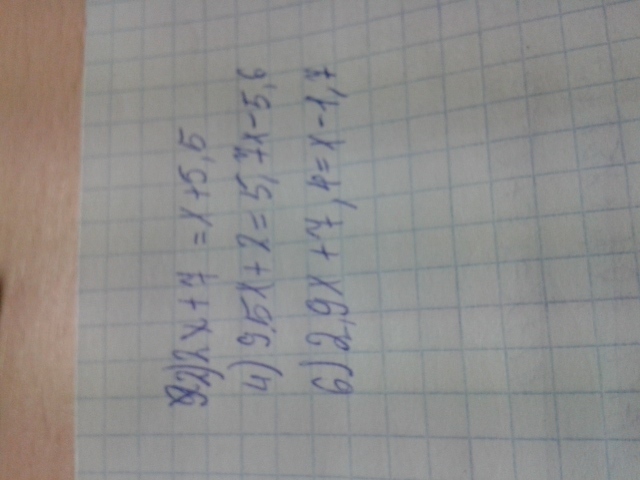 2) 2x+7=x+5,5
4) 9,5x+2=5,7x-5,6
6) 2,9x+7,4=x-1,7